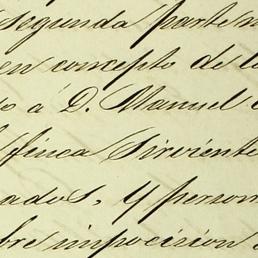 segunda parte
en concepto de la
á D. Manuel
finca sirviente
ados, y person
bre impocision